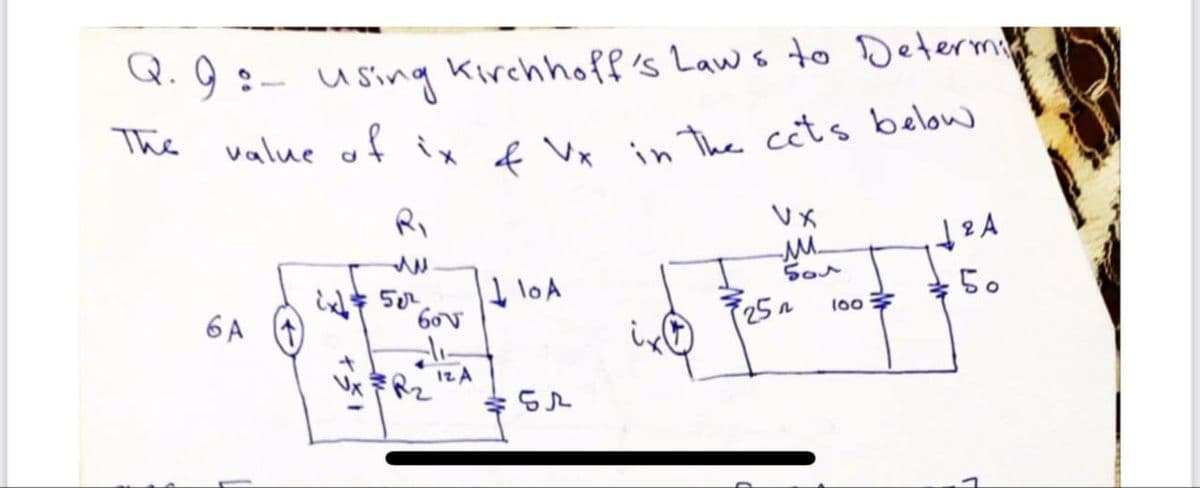 Q. 9 :- using Kirchhoff's Laws to Determi
The value of ix & Vx in The ccts below
R1
ix 5Ω
60V
↓ 10A
6A
+
Vx
-
R2
12A
5Ω
Vx
50Ω
↓ 2A
ix
25Ω
100
50